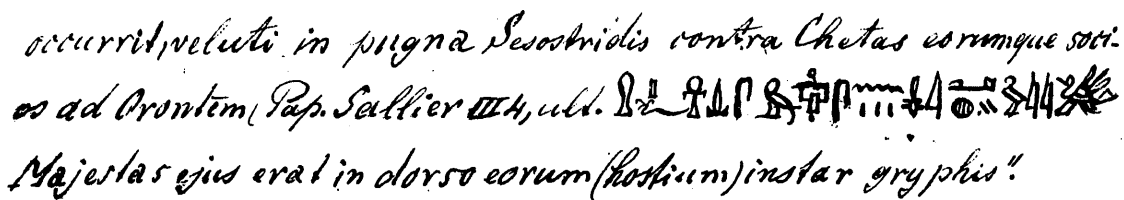 occurrit, veluti in pugna Sesostridis contra Chetas eorumque soci-
os ad Orontem (Pap. Sallier III 4, ult.
Majestas ejus erat in dorso eorum (hostium) instar gryphis".